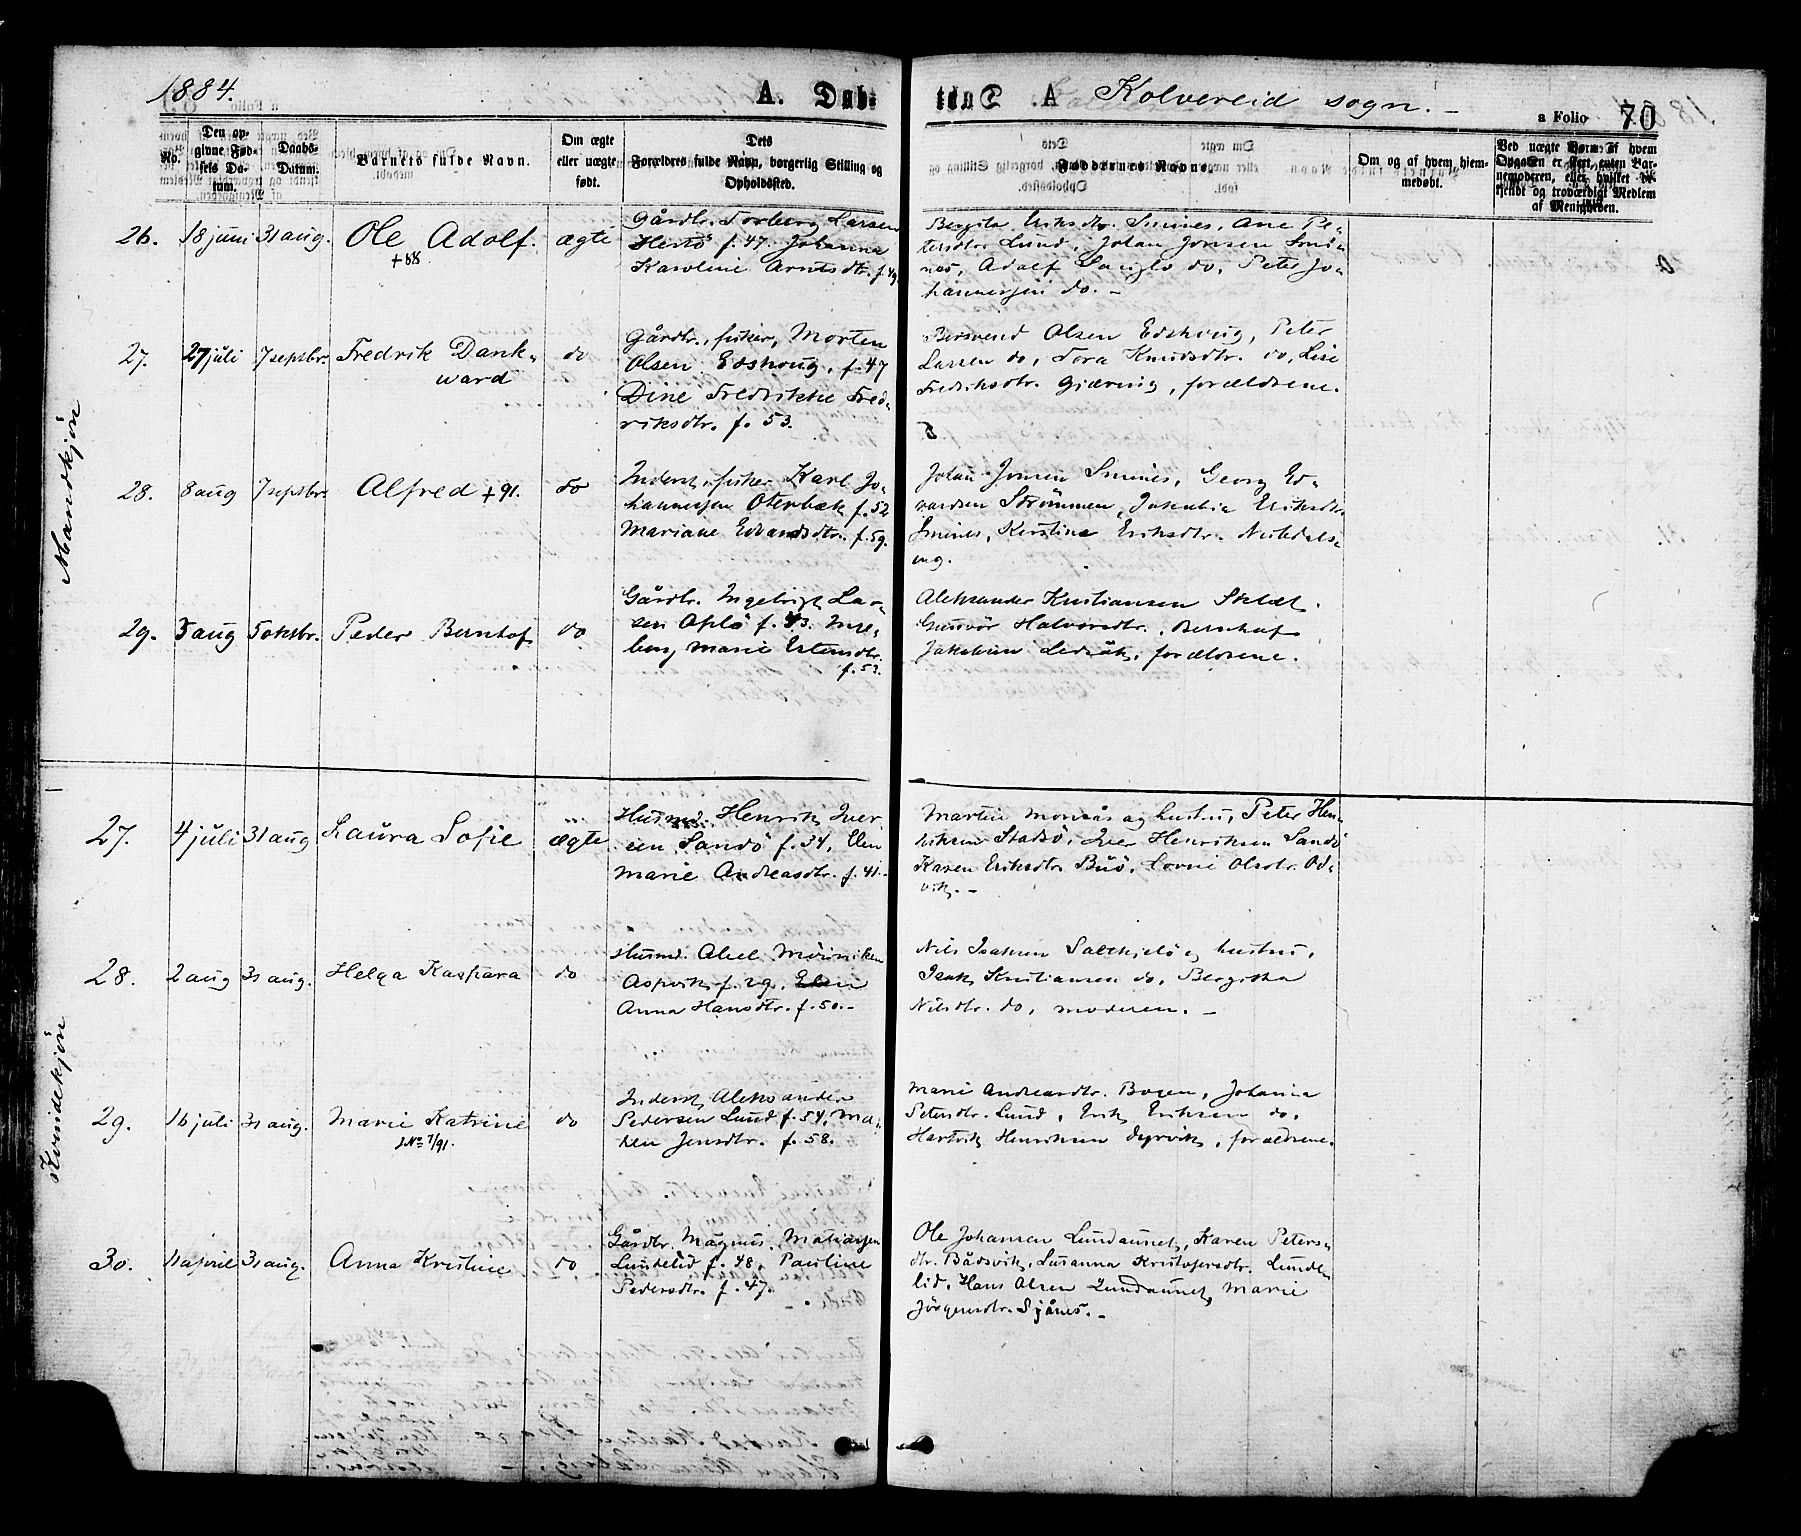 1884.
A. Dab-
A. Dab-
Kolvereid sogn. -
a Folio 70
No.
Den op-
givne Fød-
sels Da-
tum.
Daabs-
Datum.
Barnets fulde Navn.
Om ægte
eller uægte
født.
Dets
Forældres fulde Navn, borgerlig Stilling og
Opholdssted.
Faddernes Navne.
Om og af hvem hjem-
medøbt.
Ved uægte Børn: af hvem
Opgaven er skeet, enten Bar-
nemoderen, eller hvilket be-
kjendt og troværdigt Medlem
af Menigheden.
Mandkjön
26. 18 juni 31 aug. Ole Adolf. ægte
+88
Gårdbr. Torberg Larsen
f. 47. Johanna
Karoline Arntsdtr. f. 49.
Bergita Eriksdtr. Smines, Ane Pe-
tersdtr. Lund, Johan Jonsen Smi-
nes, Adolf do, Peter Jo-
hannessen do. -
27. 27 juli 7 septbr. Fredrik Dank-
ward
do
Gårdbr., fisker, Morten
Olsen Edshoug, f. 47
Dine Fredrikke Fred-
riksdtr. f. 53.
Bersvend Olsen Edshoug, Peter
Larsen do, Tora Knudsdtr. do, Lise
Fredriksdtr. Gjæring, forældrene.
28. 8 aug 7 septbr. Alfred +91. do
Inderst, fisker Karl Jo-
hannessen Oterbæk f. 52
Mariane Edvardsdtr. f. 59.
Johan Jonsen Smines, Georg Ed-
vardsen Strömmen, Jakobia Eriksdtr.
Smines, Kerstine Eriksdtr.
eng.
29. 5 aug 5 oktbr. Peder Bernhof do
Gårdbr. Ingebrigt Lar-
sen Oplö f. 43. Inge-
borg Marie Estensdtr.
f. 53.
Aleksander Kristiansen
Gunvör Halvorsdtr., Bernhof
Jakobsen, forældrene.
Kvindekjön
27. 4 juli 31 aug Laura Sofie ægte
Husmd. Henrik Iver-
sen Sandö f. 34, Elen
Marie Andreasdtr. f. 41.-
Martin Moraås og hustru, Peter Hen-
riksen Stadsö, Iver Henriksen Sandö
Karen Eriksdtr. Buö, Olsdtr. Od-
vik. -
28. 2 aug 31 aug. Helga Kaspara do
Husmd. Abel Möiniken
Aspvik f. 29,
Anna Hansdtr. f. 50.-
Nils Isaksen Saltkjelö og hustru,
Isak Kristiansen do, Bergitha
Nilsdtr. do, moderen. -
29. 16 juli 31 aug. Marie Katrine do
J.No 7/91.
Inderst Aleksander
Pedersen Lund f. 54, Ma-
len Jensdtr. f. 58.
Marie Andreasdtr. Bogen, Johanna
Petersdtr. Lund, Erik Eriksen do,
Hartvik Henriksen Dyrvik, forældrene.
30. 11 april 31 aug. Anna Kristine do
Gårdbr. Magnus Matiassen
Lundelid f. 48, Pauline
Pedersdtr. f. 47.
Ole Johansen Lundaunet, Karen Peters-
dtr. Bådsvik, Susanna Kristofersdtr. Lunde-
lid, Hans Olsen Lundaunet, Marie
Jörgensdtr. Sjånes. -